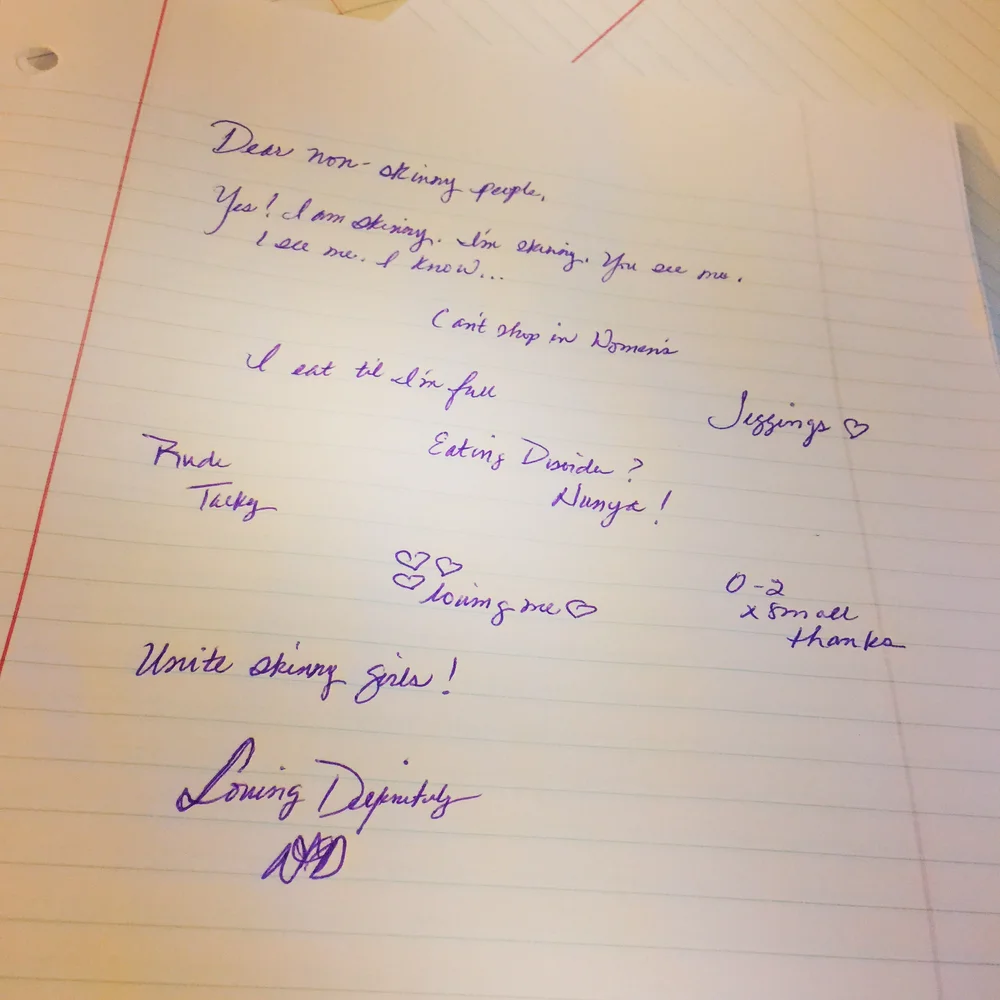 Dear non-skinny people,
Yes! I am skinny. I'm skinny. You see me.
I see me. I know...
Can't shop in Women's
I eat til I'm full
Jeggings ♡
Rude
Tacky
Eating Disorder?
Nunya!
♡♡
♡ loving me ♡
0-2
x small
thanks
Unite skinny girls!
Loving Definitely